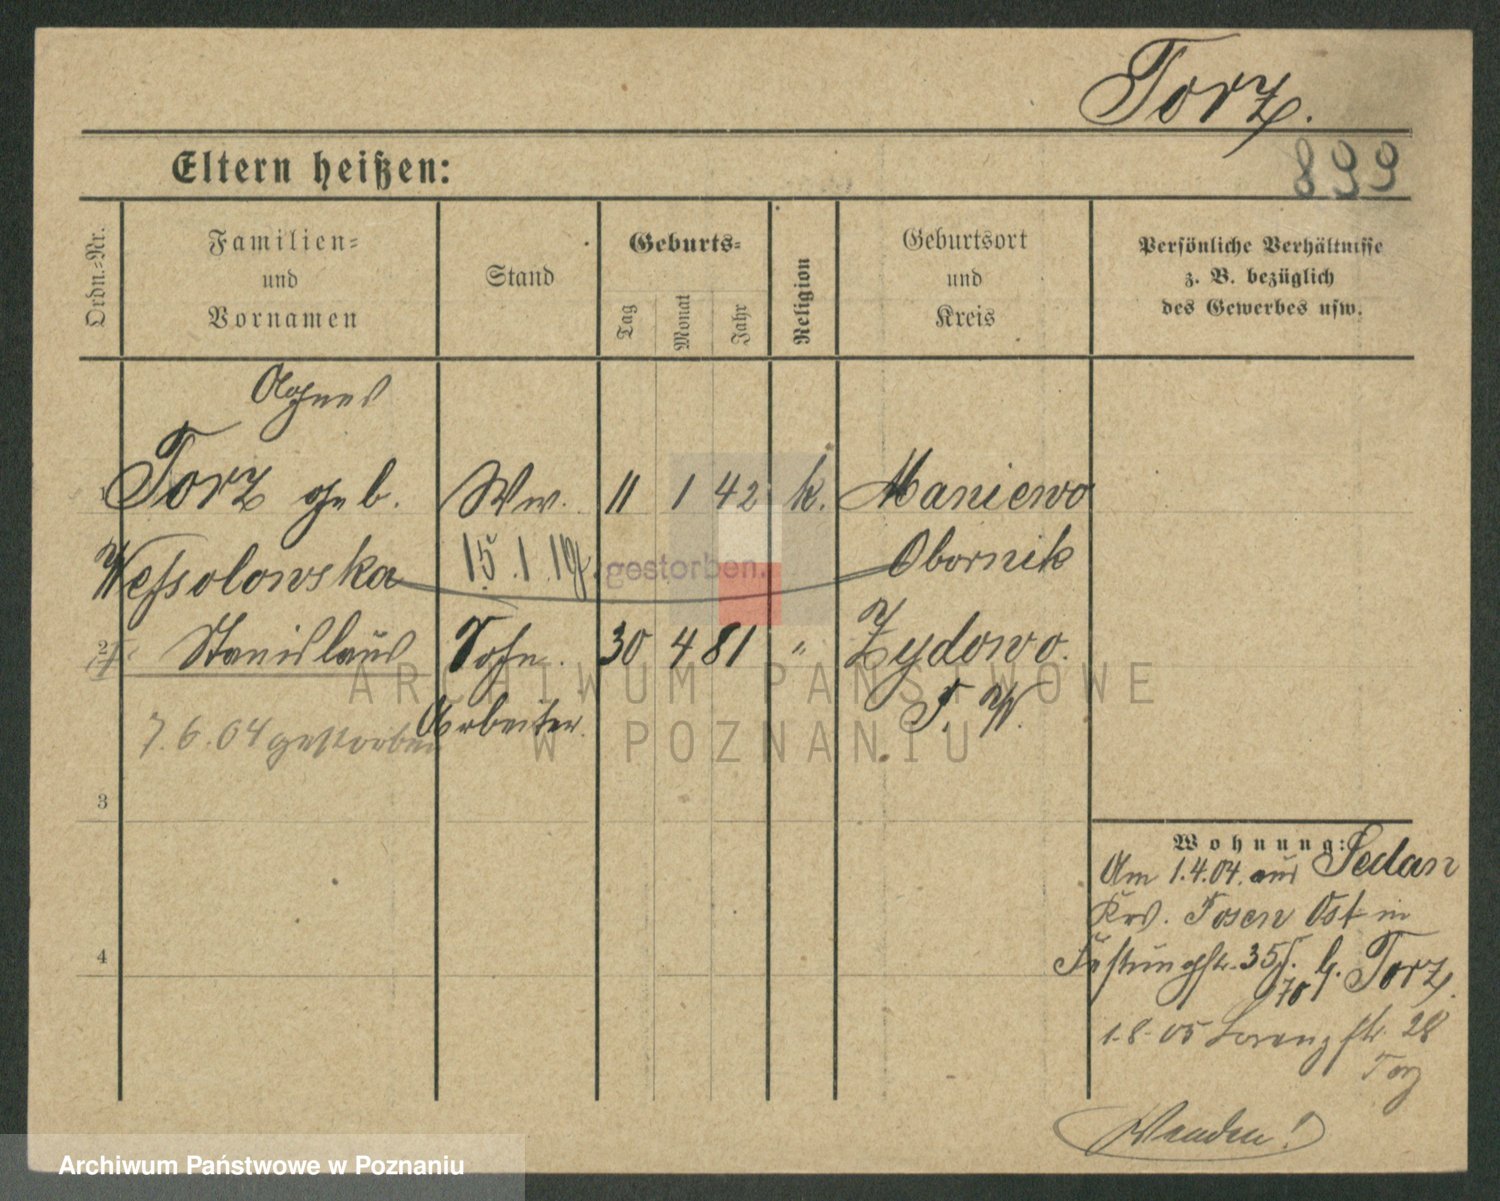 Torz.
899
Eltern heißen:
Ordn.-Nr.
Familien-
und
Vornamen
Stand
Geburts-
Tag
Monat
Jahr
Religion
Geburtsort
und
Kreis
Persönliche Verhältnisse
z. B. bezüglich
des Gewerbes usw.
Agnes
1 Torz geb. Ww. 11 1 42 k. Maniewo
Wessolowska 15.1.19 gestorben. Obornik
2 Stanislaus Sohn. 30 4 81 " Zydowo.
Arbeiter. P. W.
7.6.04 gestorben
3
4
Wohnung:
Am 1.4.04. aus Sedan
Krs. Posen Ost in
Festungstr. 35 b. Torz.
1.8.05 Lorenzstr. 28
Torz
Wenden!
ARCHIWUM PAŃSTWOWE
W POZNANIU
Archiwum Państwowe w Poznaniu